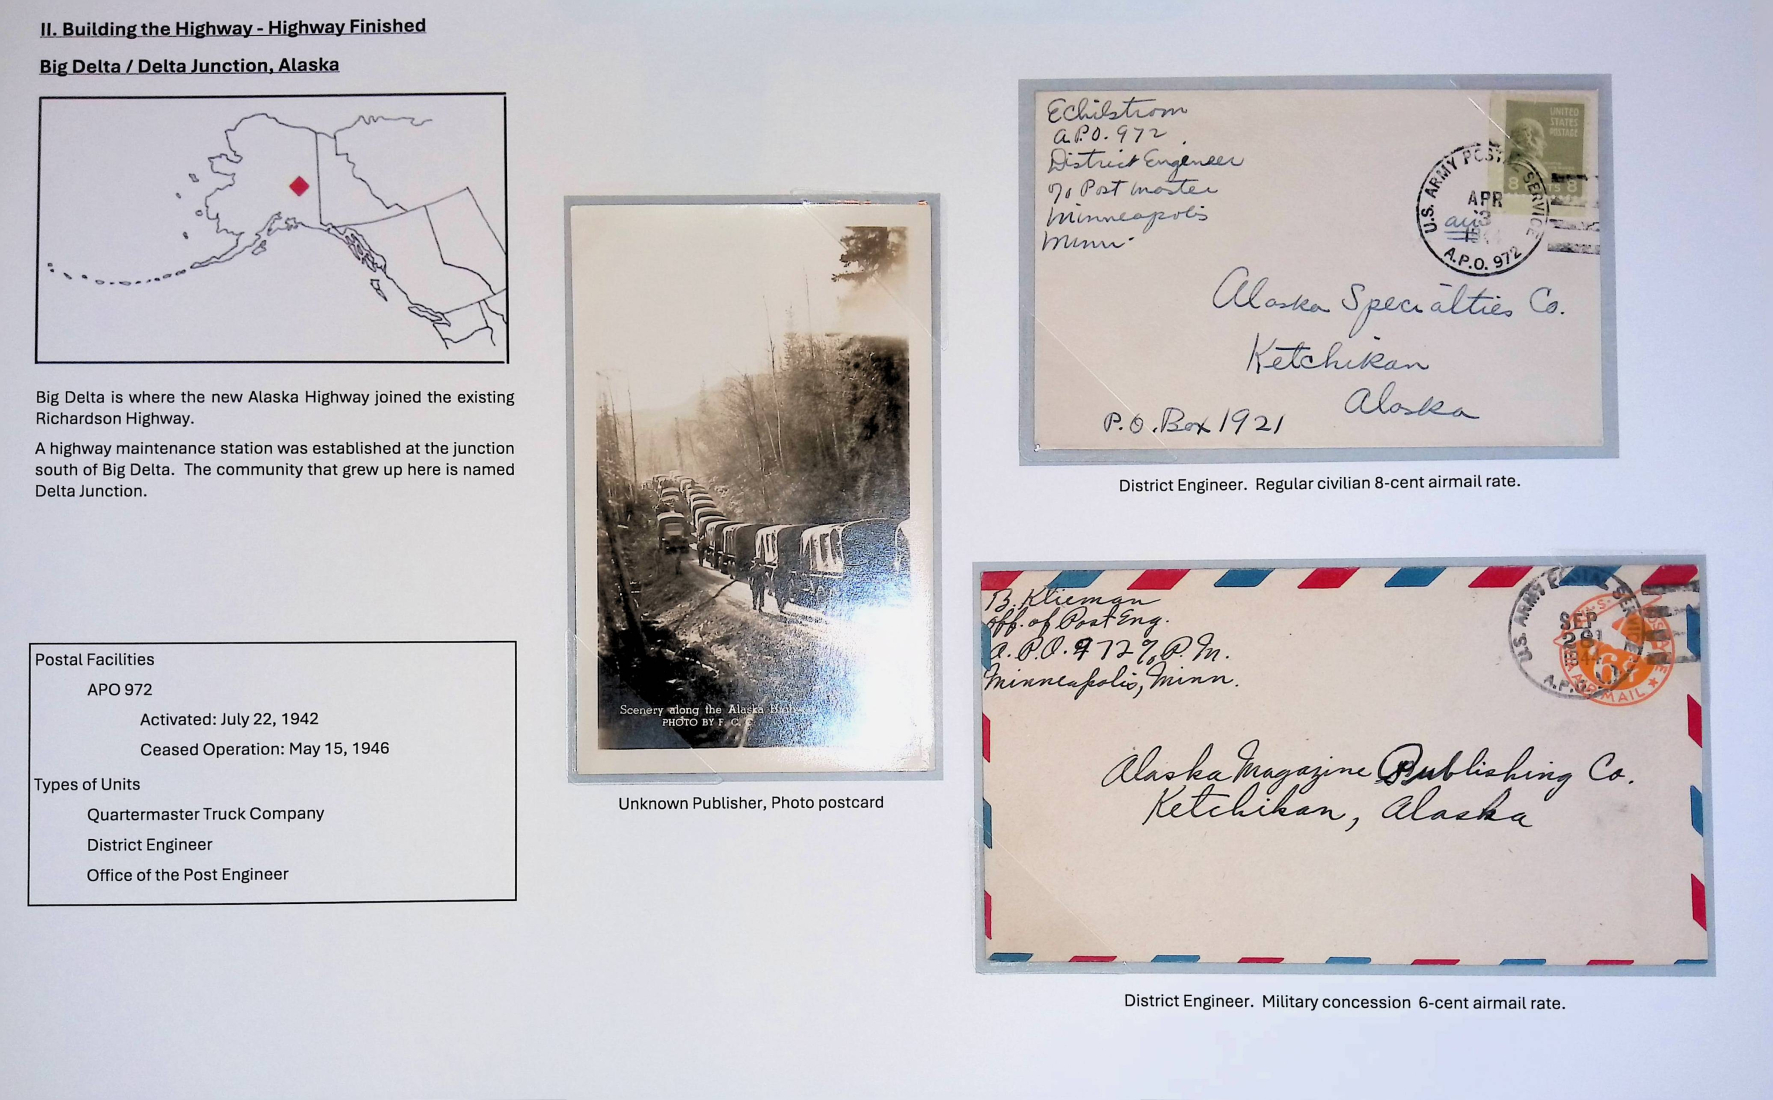 II. Building the Highway - Highway Finished
Big Delta / Delta Junction, Alaska
Big Delta is where the new Alaska Highway joined the existing
Richardson Highway.
A highway maintenance station was established at the junction
south of Big Delta. The community that grew up here is named
Delta Junction.
Postal Facilities
APO 972
Activated: July 22, 1942
Ceased Operation: May 15, 1946
Types of Units
Quartermaster Truck Company
District Engineer
Office of the Post Engineer
Scenery along the Alaska
PHOTO BY F. C. C.
Unknown Publisher, Photo postcard
Echilstrom
A.P.O. 972
District Engineer
℅ Post master
Minneapolis
Minn.
UNITED
STATES
POSTAGE
8 8
U.S. ARMY POSTAL SERVICE
APR
3
A.P.O. 972
Alaska Specialties Co.
Ketchikan
Alaska
P.O. Box 1921
District Engineer. Regular civilian 8-cent airmail rate.
B. Klieman
Off. of Post Eng.
A. P.O. 972 ℅ P. M.
Minneapolis, Minn.
U.S. ARMY POSTAL SERVICE
SEP
A.P.O.
AIR MAIL
Alaska Magazine Publishing Co.
Ketchikan, Alaska
District Engineer. Military concession 6-cent airmail rate.